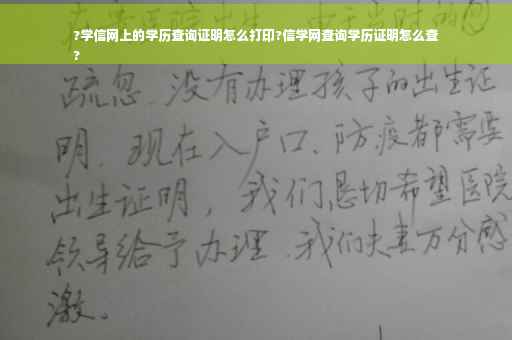 ?学信网上的学历查询证明怎么打印?信学网查询学历证明怎么查
?
疏忽.没有办理孩子的出生证
明.现在入户口、防疫都需要
出生证明，我们恳切希望医院
领导给予办理.我们夫妻万分感
激。